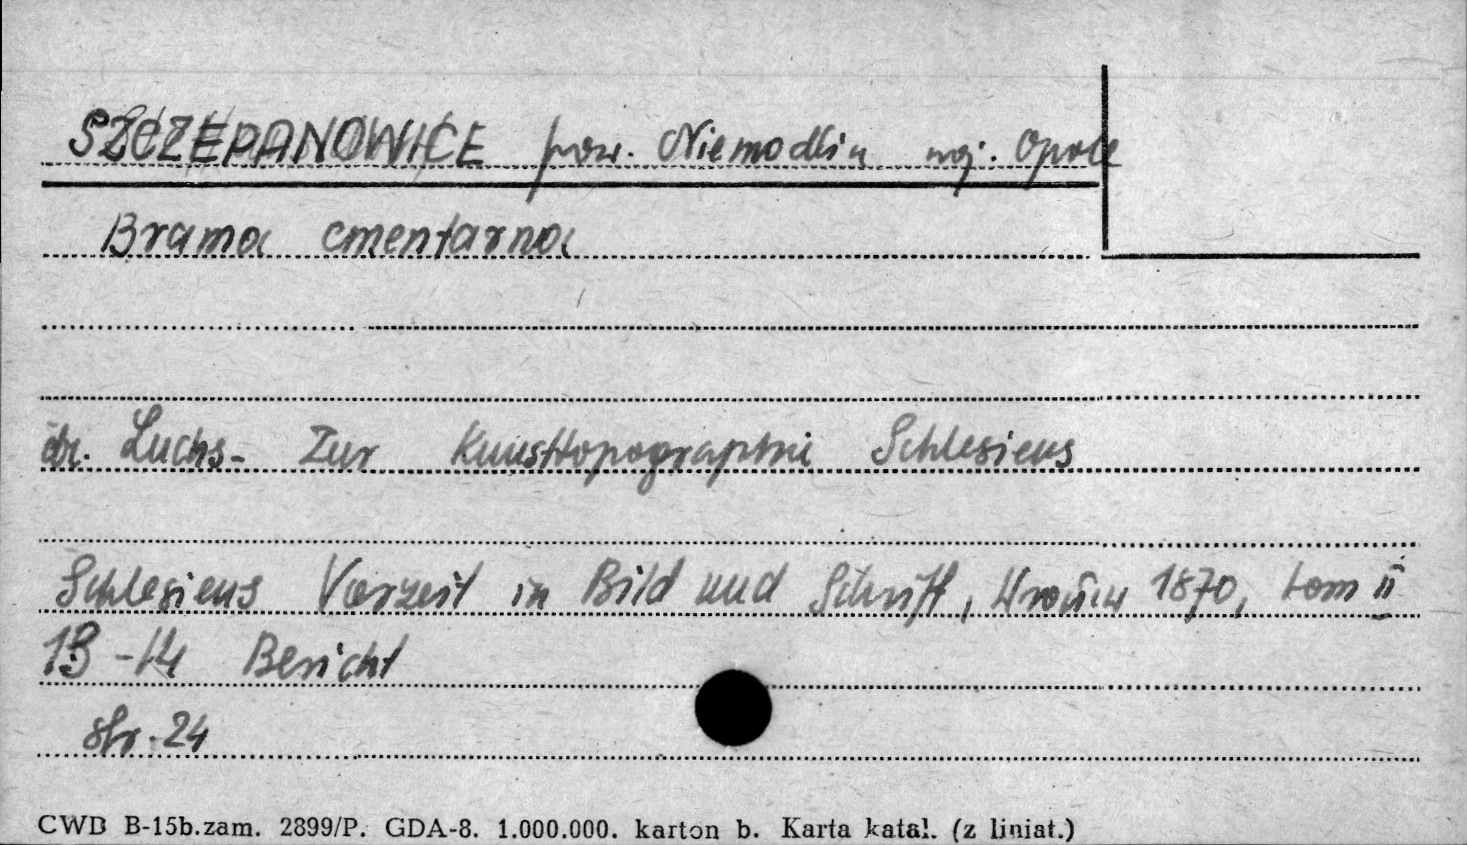 SZCZEPANOWICE pow. Niemodlin woj. Opole
Brama cmentarna
dr. Luchs - Zur Kunsttopographie Schlesiens
Schlesiens Vorzeit in Bild und Schrift, Wrocław 1870, tom II
13-14 Bericht
str. 24
CWD B-15b.zam. 2899/P. GDA-8. 1.000.000. karton b. Karta katal. (z liniat.)